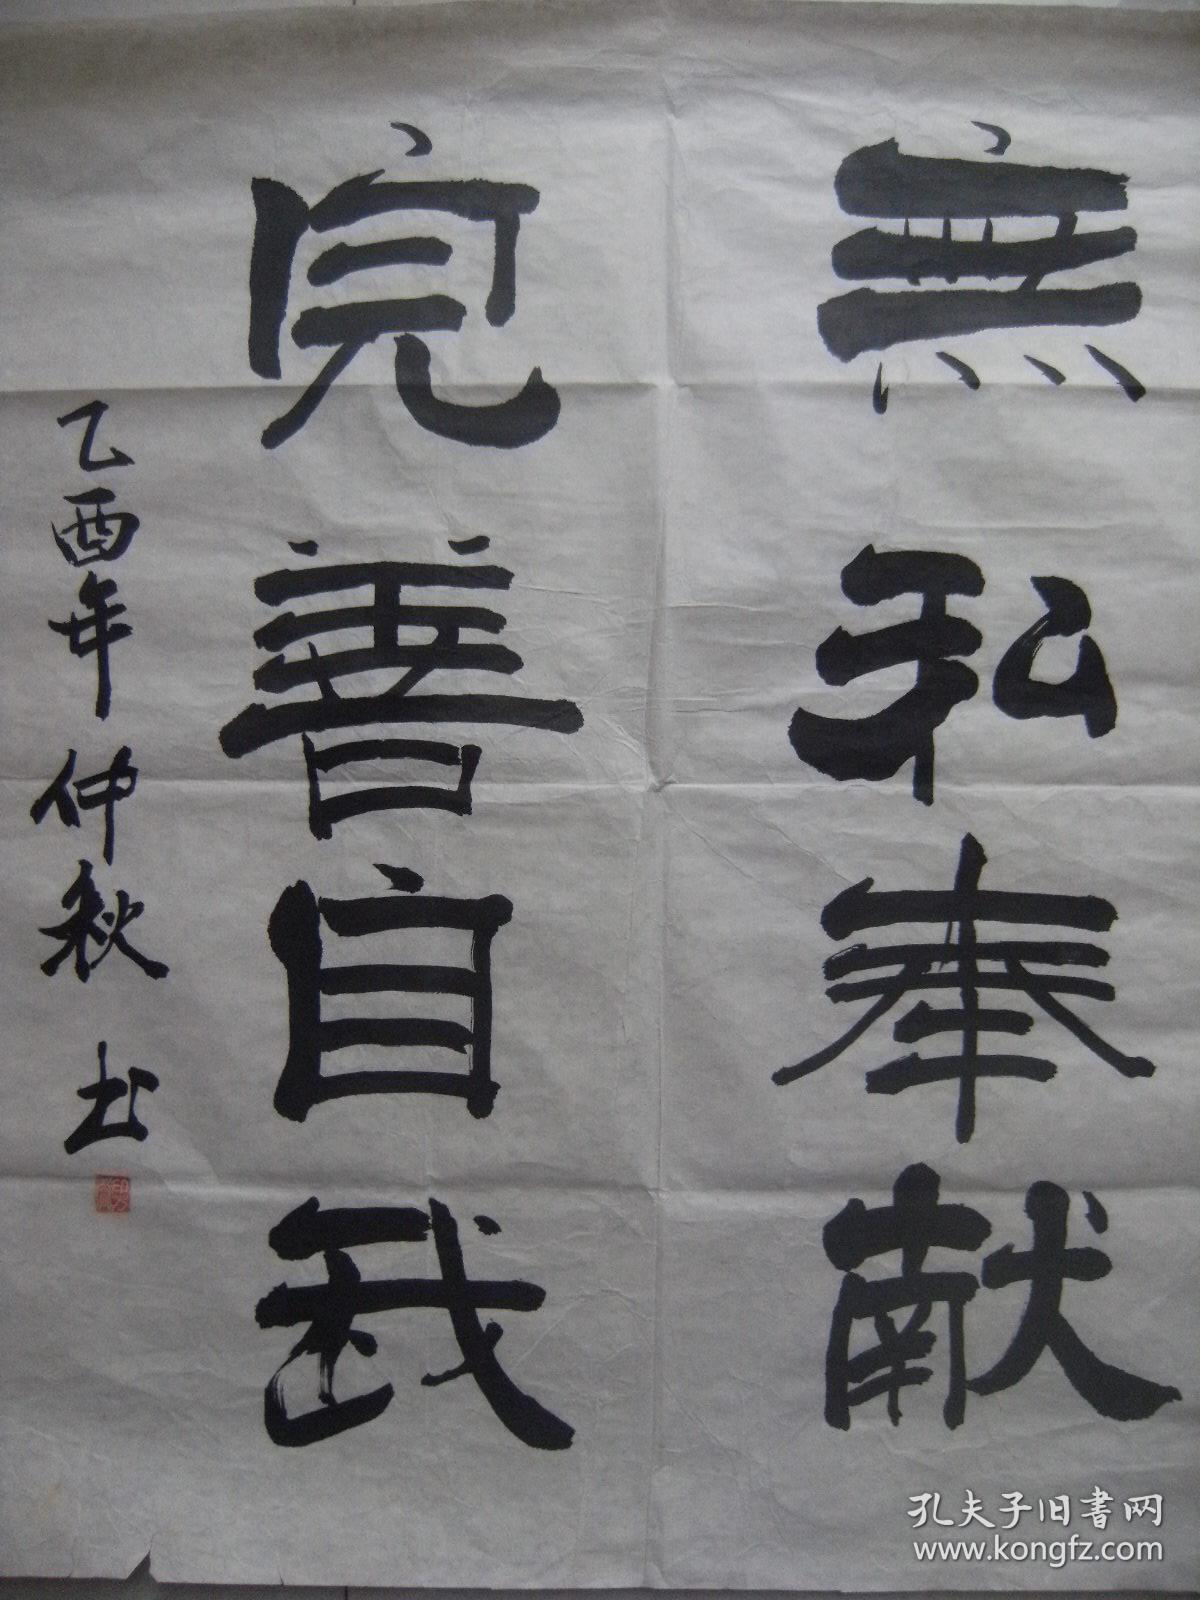 無私奉献
完善自我
乙酉年仲秋书
孔夫子旧書网
www.kongfz.com